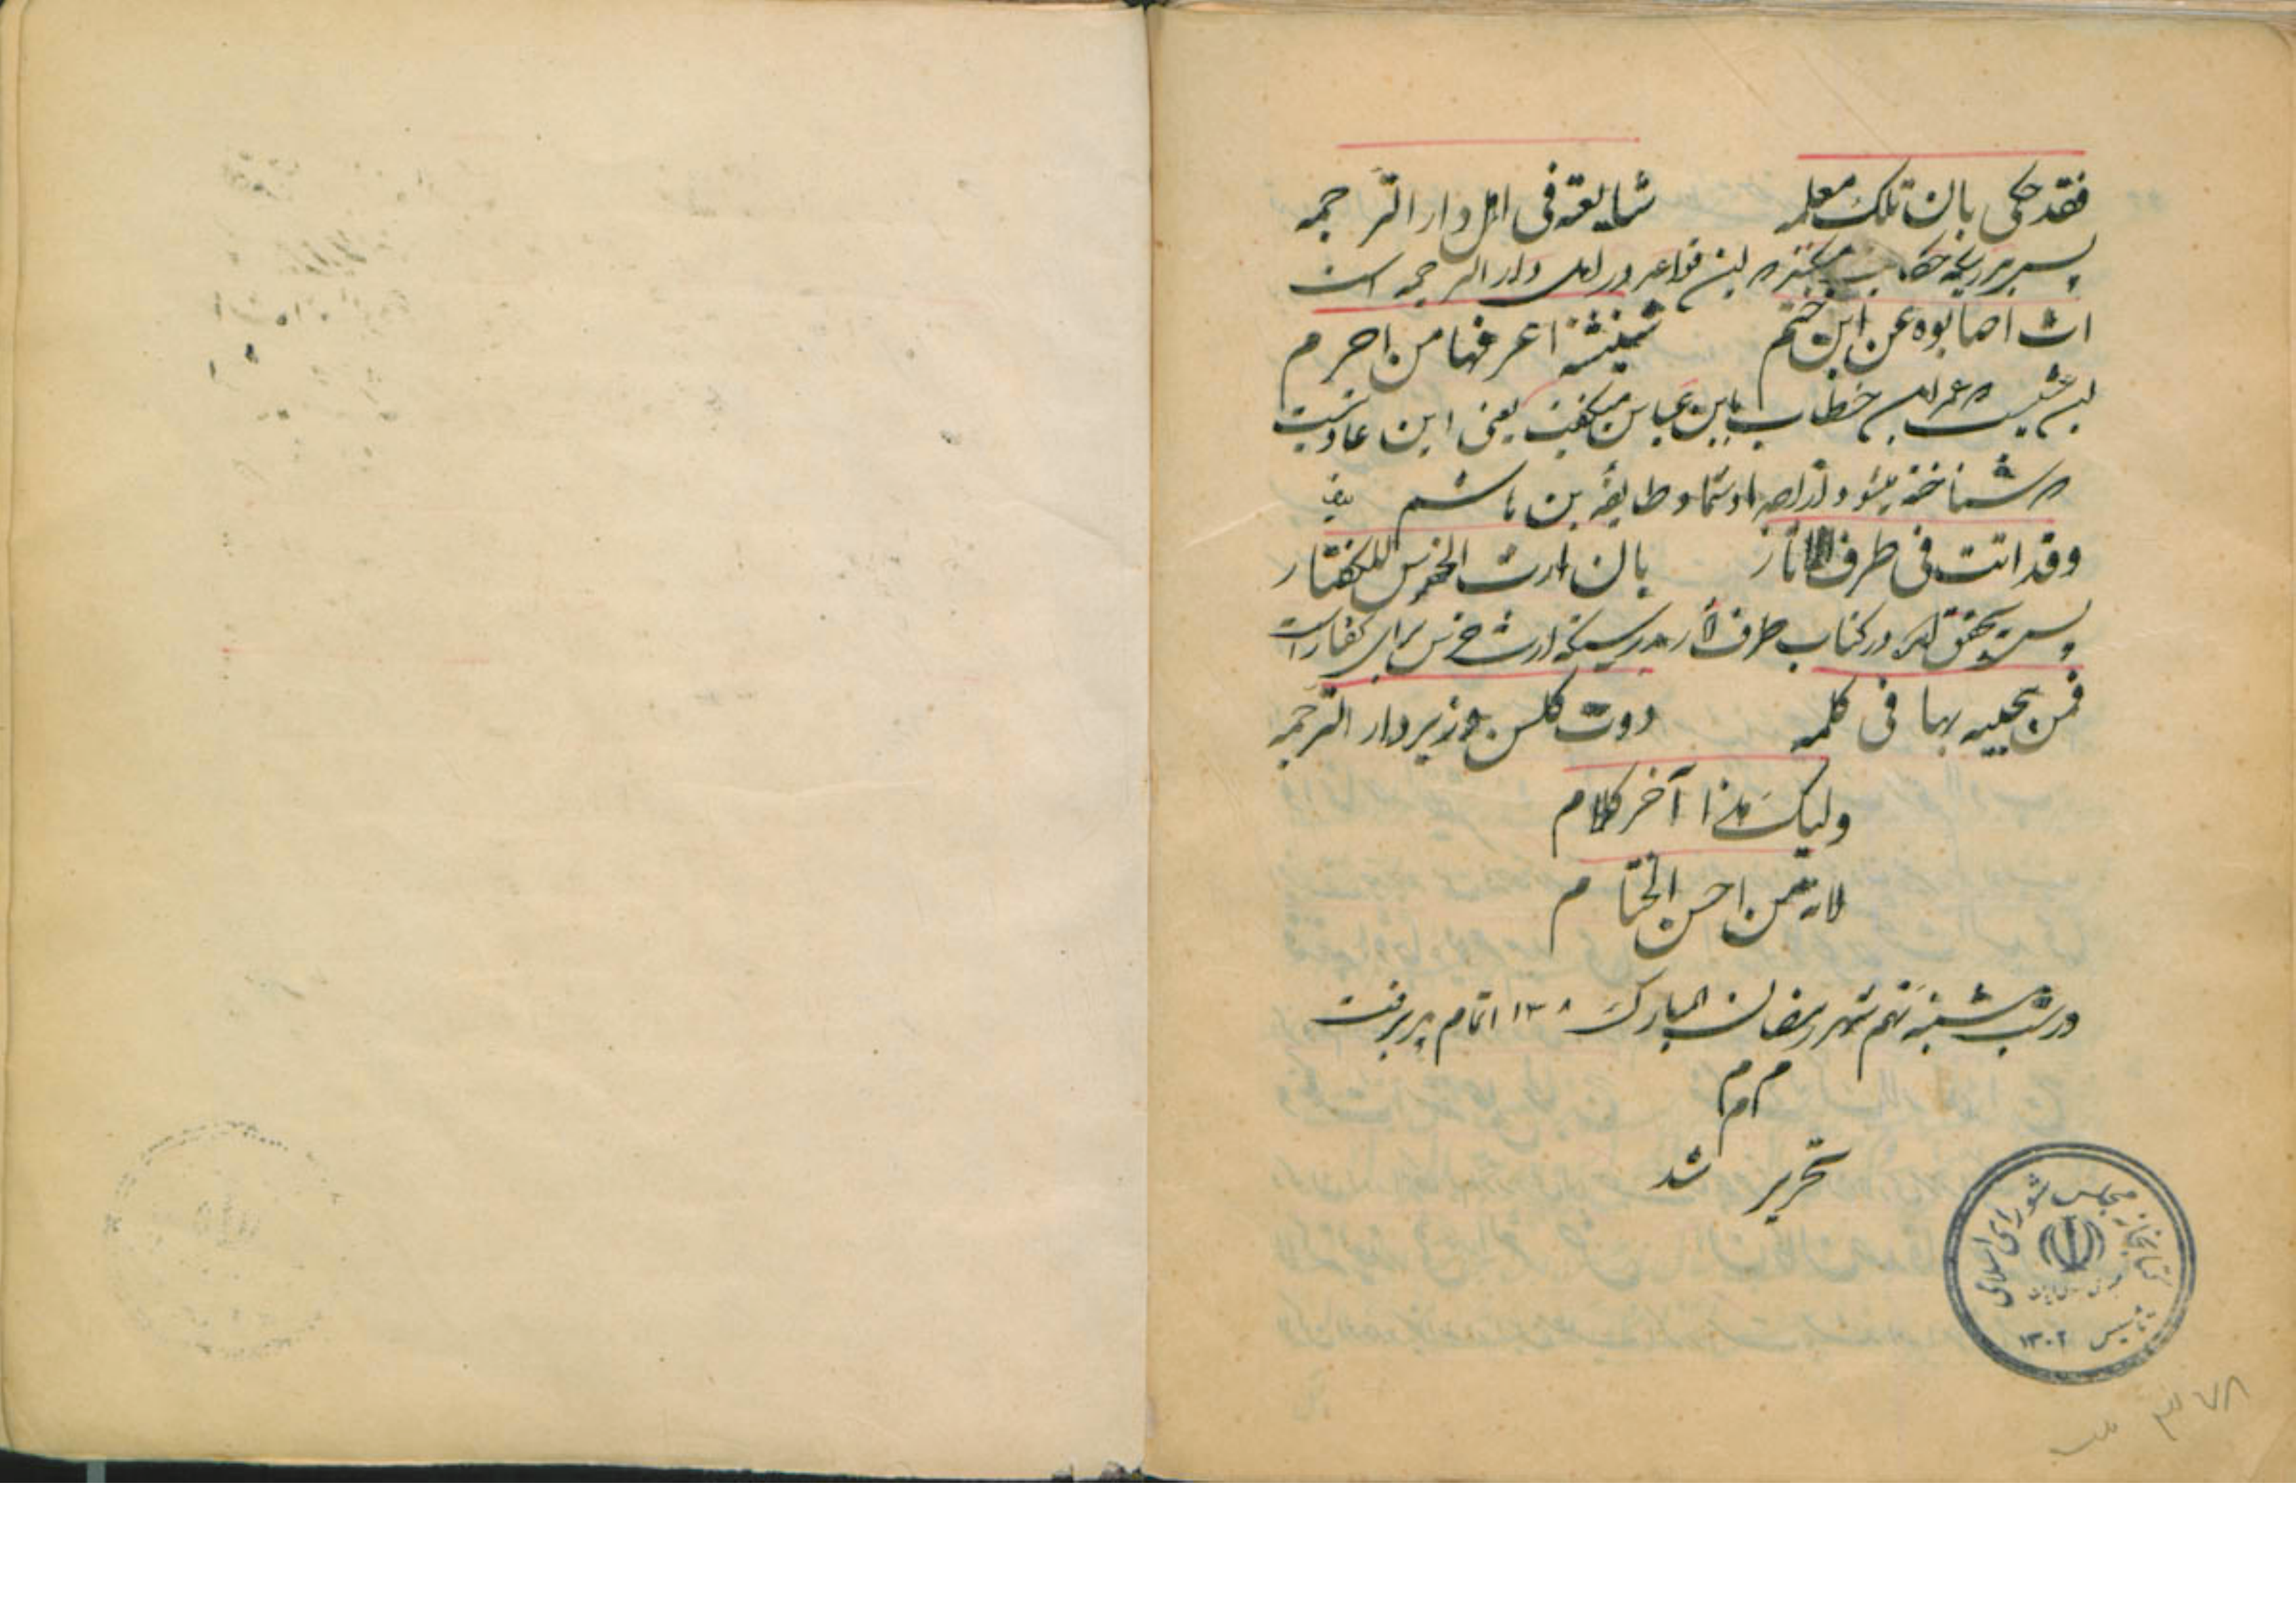 فقد حکی بان تلک معلمه شایعة فی اهل دار الترجمه
پس بدرستیکه حکایت میکنند که این قواعد در اهل دار الترجمه است
اصابوه عن ابن خیثم شنشنة اعرفها من اخزم
عمر ابن خطاب باین عباس میگفت یعنی این عادتیست
که شناخته میشود از اجداد شما و طایفه بن هاشم
وقد اتت فی طرف الآثار بان ارث الخرس للکفتار
پس بتحقیق آمد در کتاب طرف آثار بدرستیکه ارث خرس برای کفتار است
فمن یجیبه بها فی کلمه دوت کلسن وزیر دار الترجمه
ولیک هذا آخر کلام
لانه من احسن الختام
در شب شنبه نهم شهر رمضان المبارک ۱۳۰۸ اتمام پذیرفت
م م م
تحریر شد
کتابخانه مجلس شورای اسلامی
تأسیس ۱۳۰۲
۳۷۸